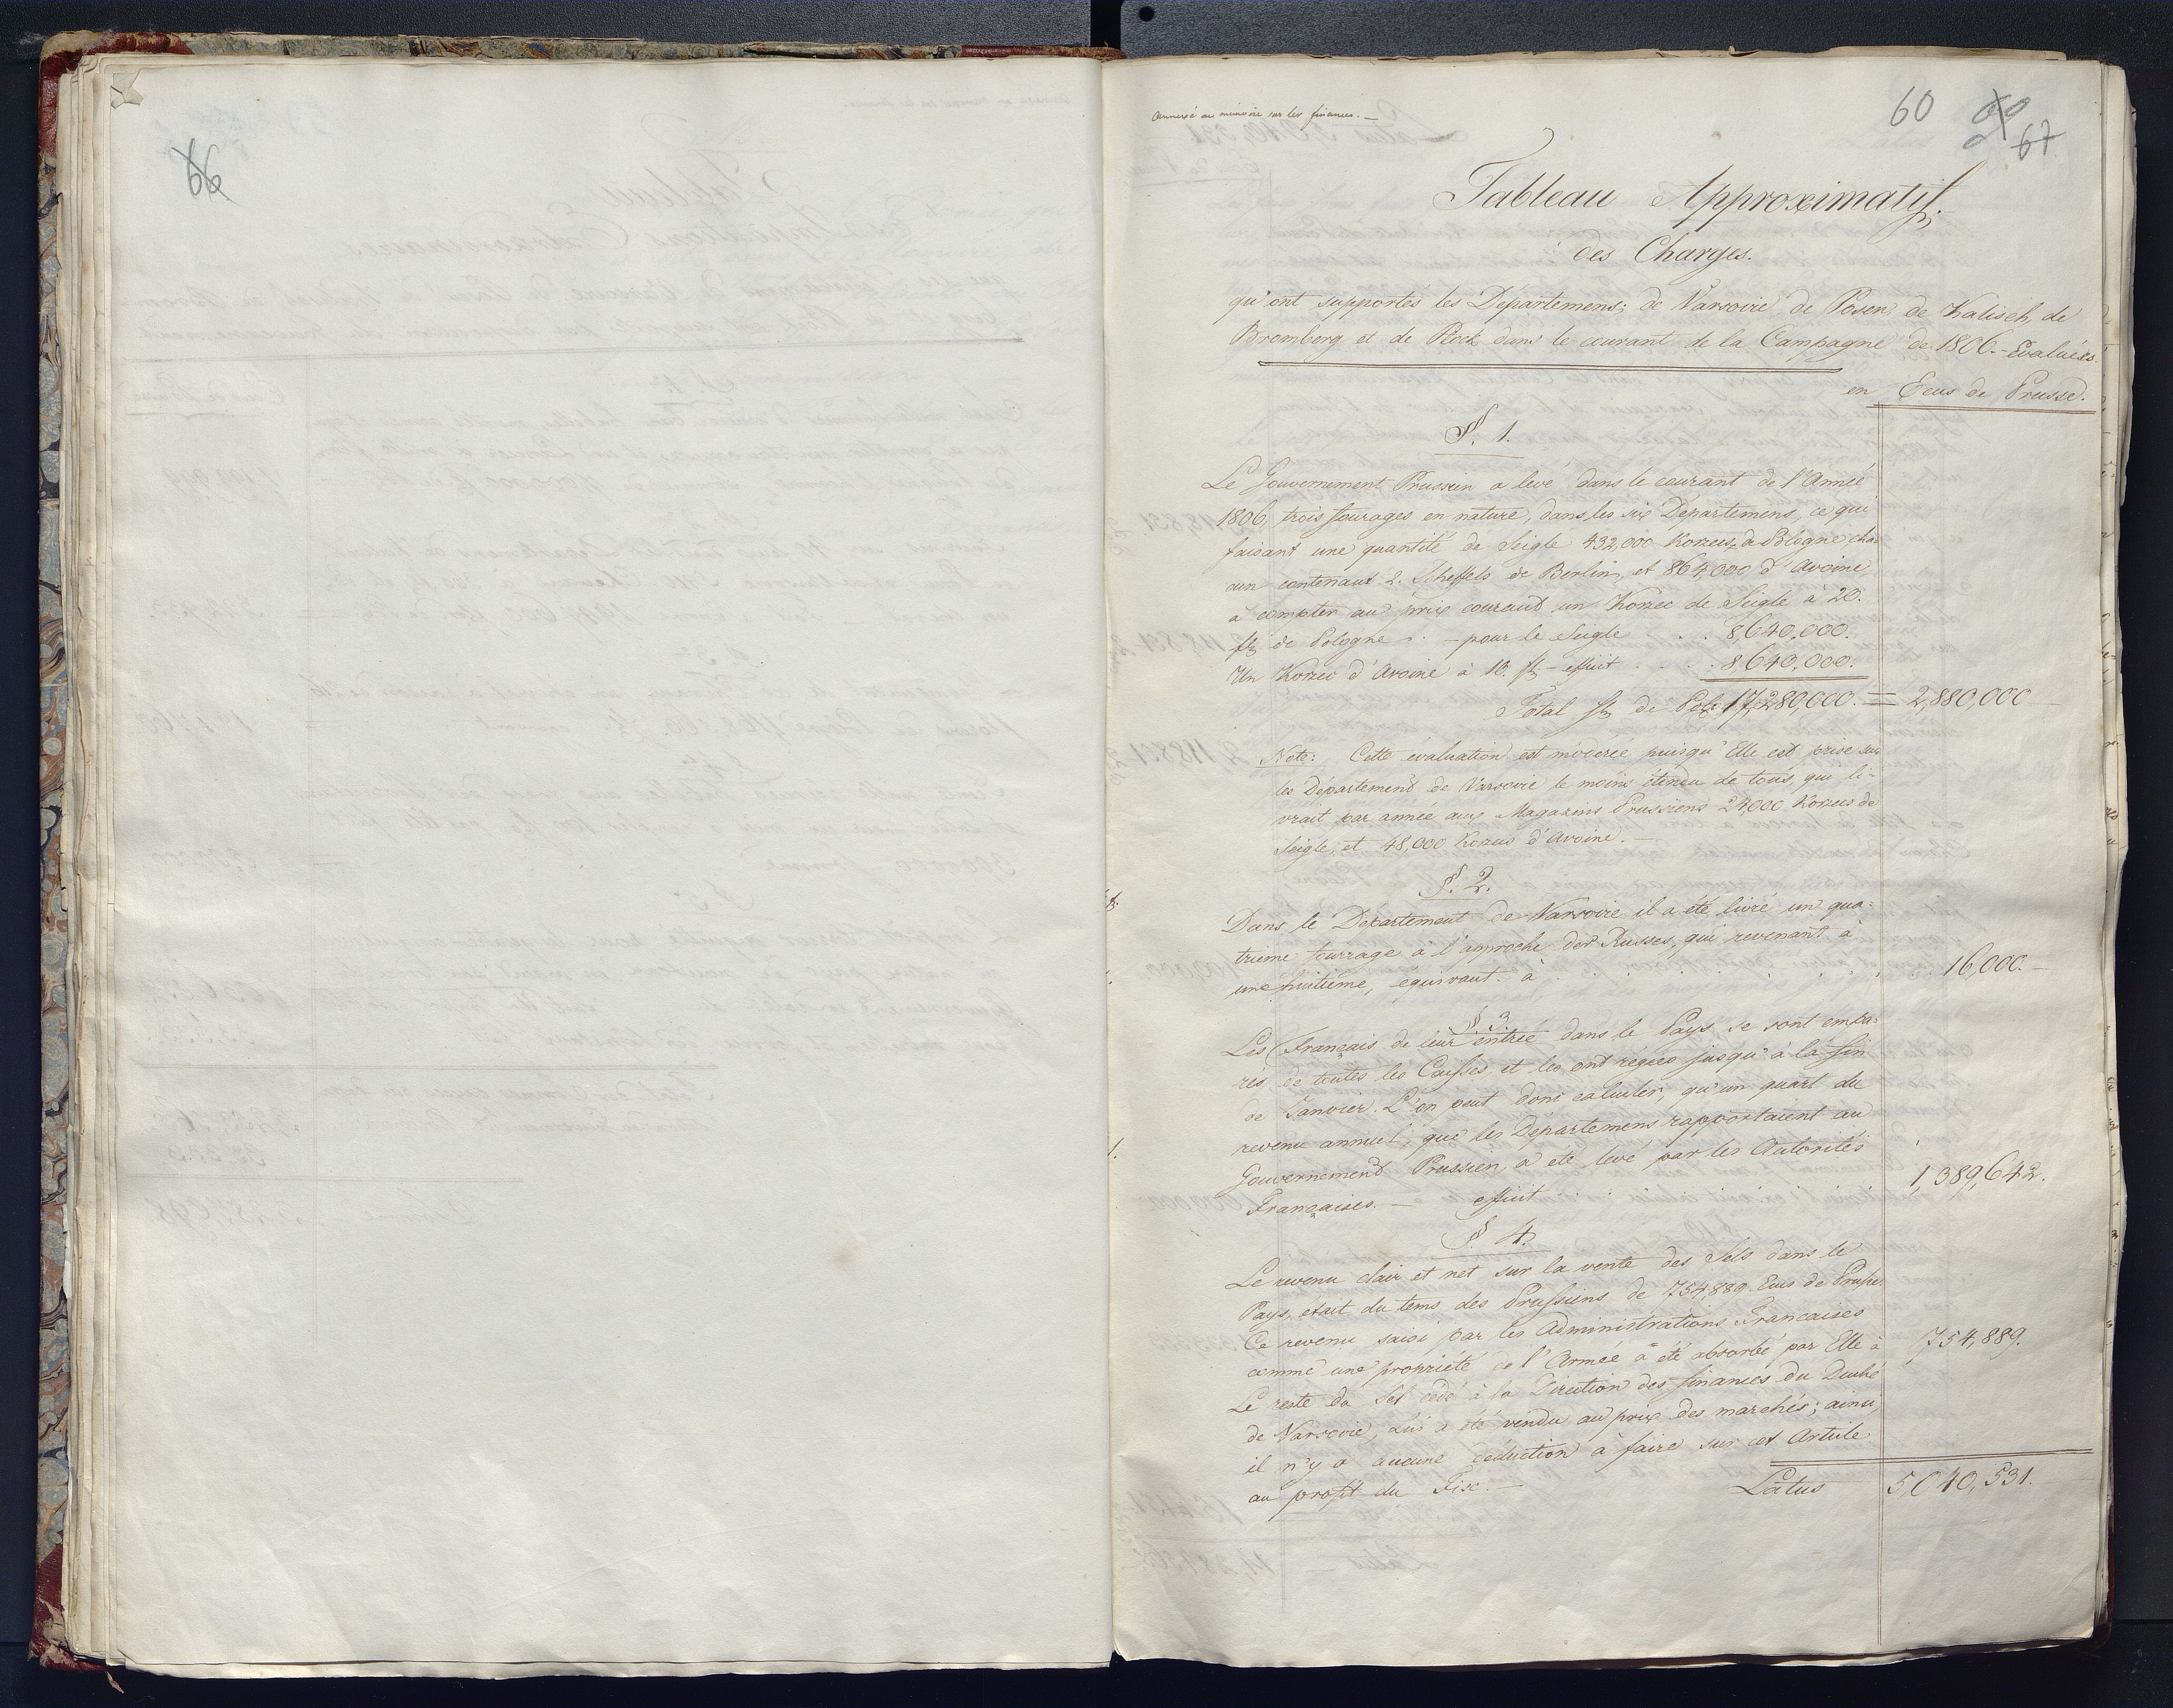 66
Annexé au mémoire sur les finances. —
60
67
Tableau Approximatif.
des Charges.
qu'ont supportes les Départemens; de Varsovie de Posen de Kalisch, de
Bromberg et de Plock dans le courant de la Campagne de 1806. - Evaluées
en Ecus de Prusse.
§. 1.
Le Gouvernement Prussien a levé dans le courant de l'Année
1806, trois fourages en nature, dans les six Departemens, ce qui
faisant une quantité de Seigle 432,000 Korzecs de Pologne cha-
cun contenant 2. Scheffels de Berlin, et 864,000 d'Avoine
à compter au prix courant un Korzec de Seigle à 20.
fl de Pologne . - pour le Seigle . . 8,640,000.
Un Korzec d'Avoine à 10. fl - effuit . . . . 8,640,000.
Total fl de Pol: 17,280,000. = 2,880,000 —
Note: Cette évaluation est moderée puisqu'Elle est prise sur
les Département de Varsovie le moins étendu de tous, qui li-
vrait par année aux Magazins Prussiens 24,000 Korzecs de
Seigle, et 48,000 Korzecs d'Avoine. —
§. 2.
Dans le Departement de Varsovie il a été livré un qua-
trieme fourrage à l'approche des Russes, qui revenant à
une huitieme, equivaut à . . . . . . . . 16,000. —
§. 3.
Les Français de leur entrée dans le Pays se sont empa-
rés de toutes les Caisses et les ont régies jusqu'à la fin
de Janvier. L'on peut donc calculer, qu'un quart du
revenu annuel, que les Départemens rapportaient au
Gouvernement Prussien, a eté levé par les Autorités
Françaises. — effuit . . . . . . 1,389,642.
§. 4.
Le revenu clair et net sur la vente des Sels dans le
Pays, était du tems des Prussiens de 754,889 Ecus de Prusse.
Ce revenu saisi par les Administrations Francaises
comme une propriété de l'Armée a été absorbé par Elle à 754,889.
Le reste du Sel cédé à la Direction des finances du Duché
de Varsovie, lui a été vendu au prix des marchés; ainsi
il n'y a aucune déduction à faire sur cet Article
au profit du Fisc. —
Latus 5,040,531.